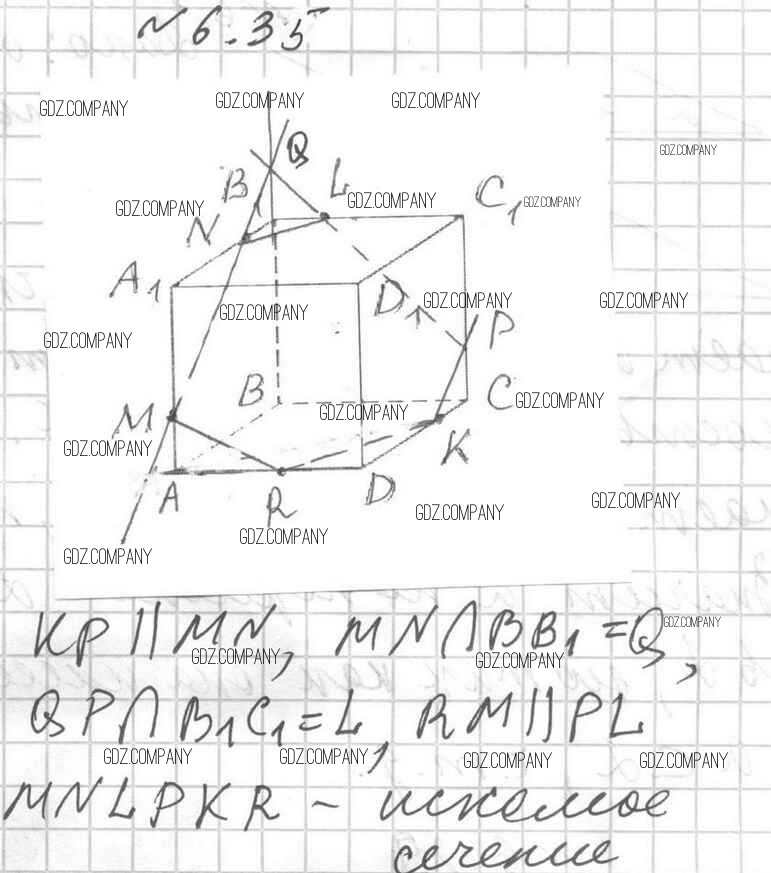 № 6.35
GDZ.COMPANY GDZ.COMPANY GDZ.COMPANY
Q GDZ.COMPANY
B₁ L C₁
GDZ.COMPANY GDZ.COMPANY GDZ.COMPANY
N
A₁ D₁ GDZ.COMPANY GDZ.COMPANY
GDZ.COMPANY
GDZ.COMPANY P
B C
M GDZ.COMPANY GDZ.COMPANY
GDZ.COMPANY K
A R D
GDZ.COMPANY GDZ.COMPANY GDZ.COMPANY
GDZ.COMPANY
KP || MN, MN ∩ BB₁ = Q,
GDZ.COMPANY GDZ.COMPANY GDZ.COMPANY
QP ∩ B₁C₁ = L, RM || PL
GDZ.COMPANY GDZ.COMPANY GDZ.COMPANY GDZ.COMPANY
MNLPKR – искомое
сечение